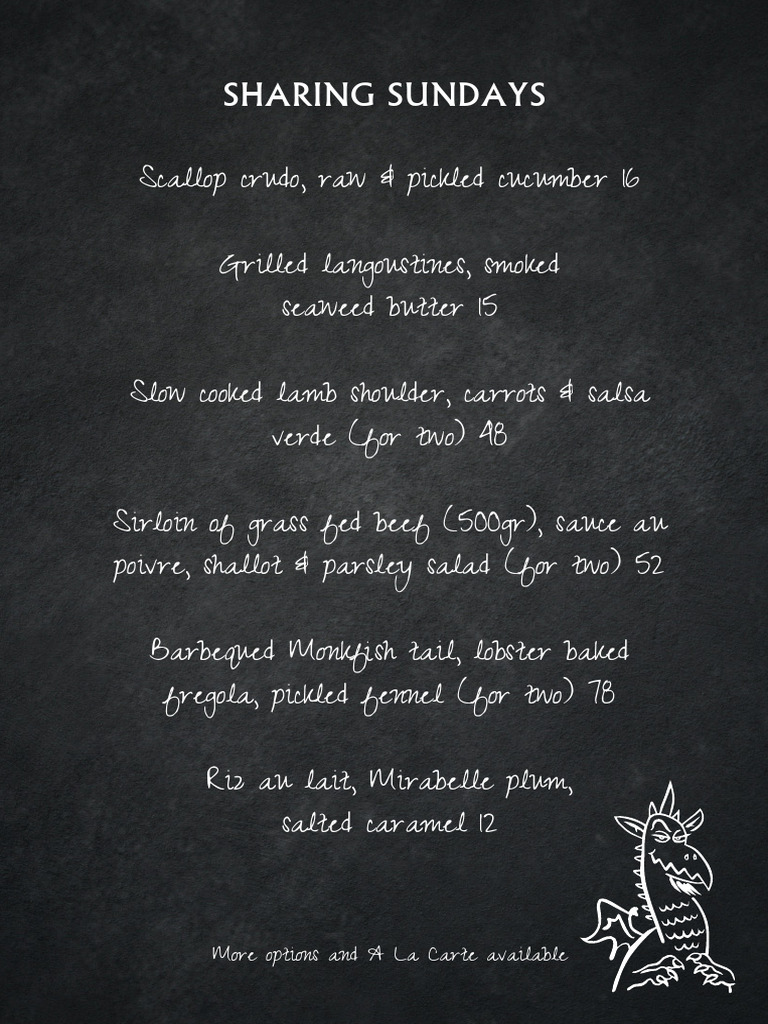 SHARING SUNDAYS
Scallop crudo, raw & pickled cucumber 16
Grilled langoustines, smoked
seaweed butter 15
Slow cooked lamb shoulder, carrots & salsa
verde (for two) 48
Sirloin of grass fed beef (500gr), sauce au
poivre, shallot & parsley salad (for two) 52
Barbequed Monkfish tail, lobster baked
fregola, pickled fennel (for two) 78
Riz au lait, Mirabelle plum,
salted caramel 12
More options and A La Carte available